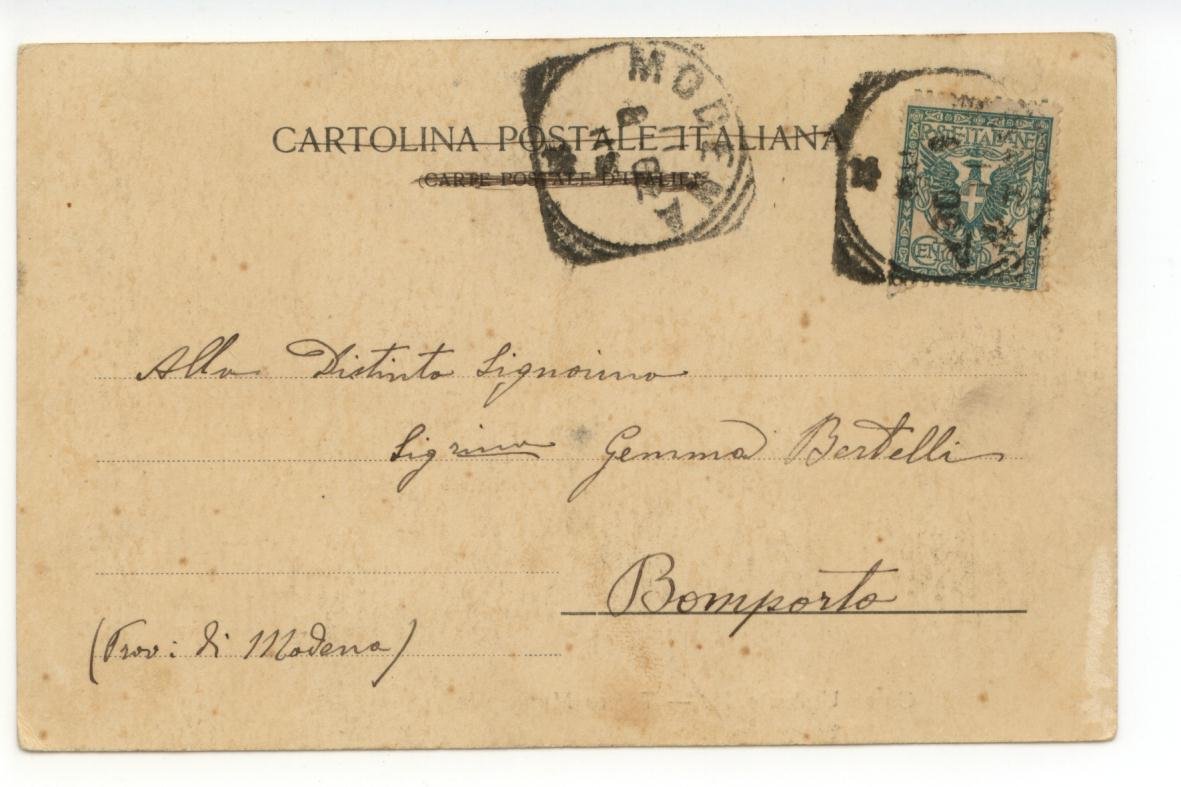 CARTOLINA POSTALE ITALIANA
(CARTE POSTALE D'ITALIE)
MODENA
POSTE ITALIANE
CENT
Alla Distinta Signorina
Sigrina Gemma Bertelli
Bomporto
(Prov: di Modena)